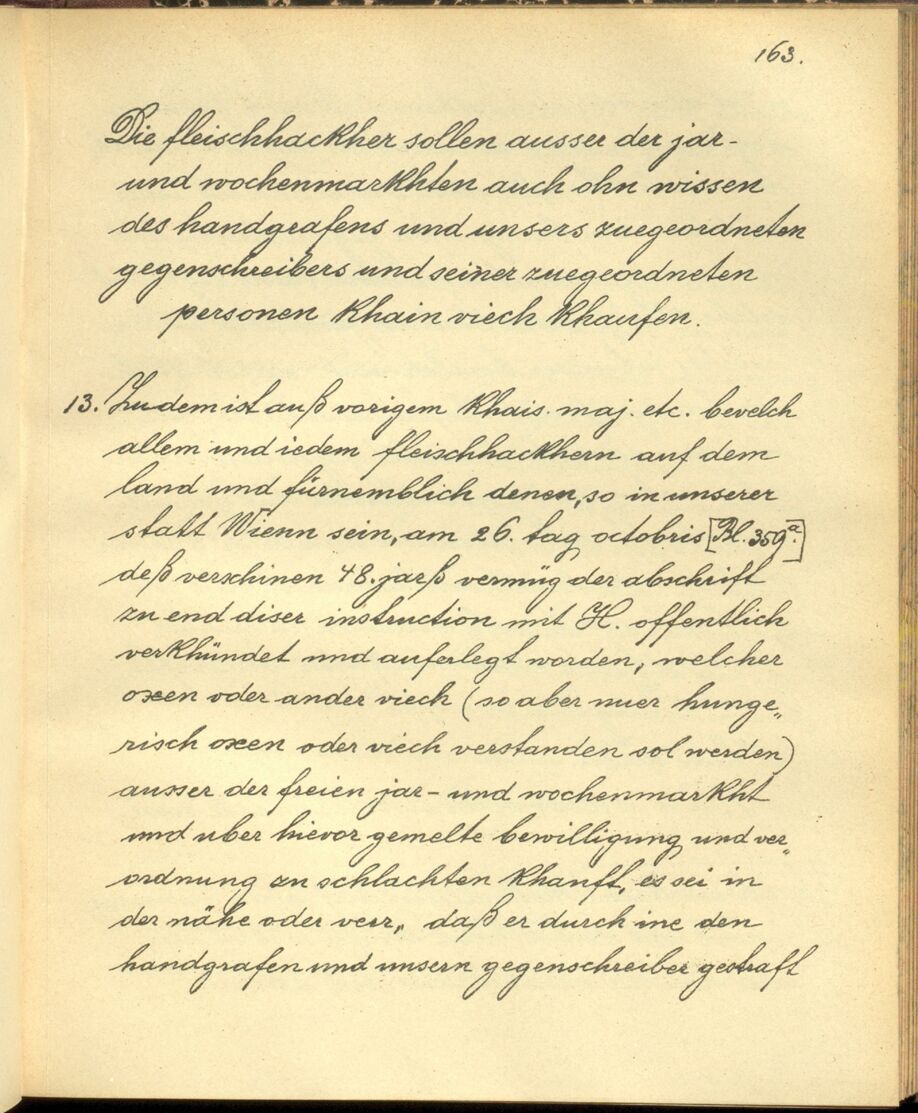 163.
Die fleischhackher sollen ausser der jar-
und wochenmarkhten auch ohn wissen
des handgrafens und unsers zuegeordneten
gegenschreibers und seiner zuegeordneten
personen khain viech khaufen.
13. Zu dem ist auß vorigem khais. maj. etc. bevelch
allem und iedem fleischhackhern auf dem
land und fürnemblich denen, so in unserer
statt Wienn sein, am 26. tag octobris [Bl. 359a.]
deß verschinen 48. jarß vermüg der abschrift
zu end diser instruction mit H. offentlich
verkhündet und auferlegt worden, welcher
oxen oder ander viech (so aber nuer hunge„
risch oxen oder viech verstanden sol werden)
ausser der freien jar- und wochenmarkht
und uber hievor gemelte bewilligung und ver„
ordnung zu schlachten khauft, es sei in
der nähe oder verr„ daß er durch ine den
handgrafen und unsern gegenschreiber gestraft